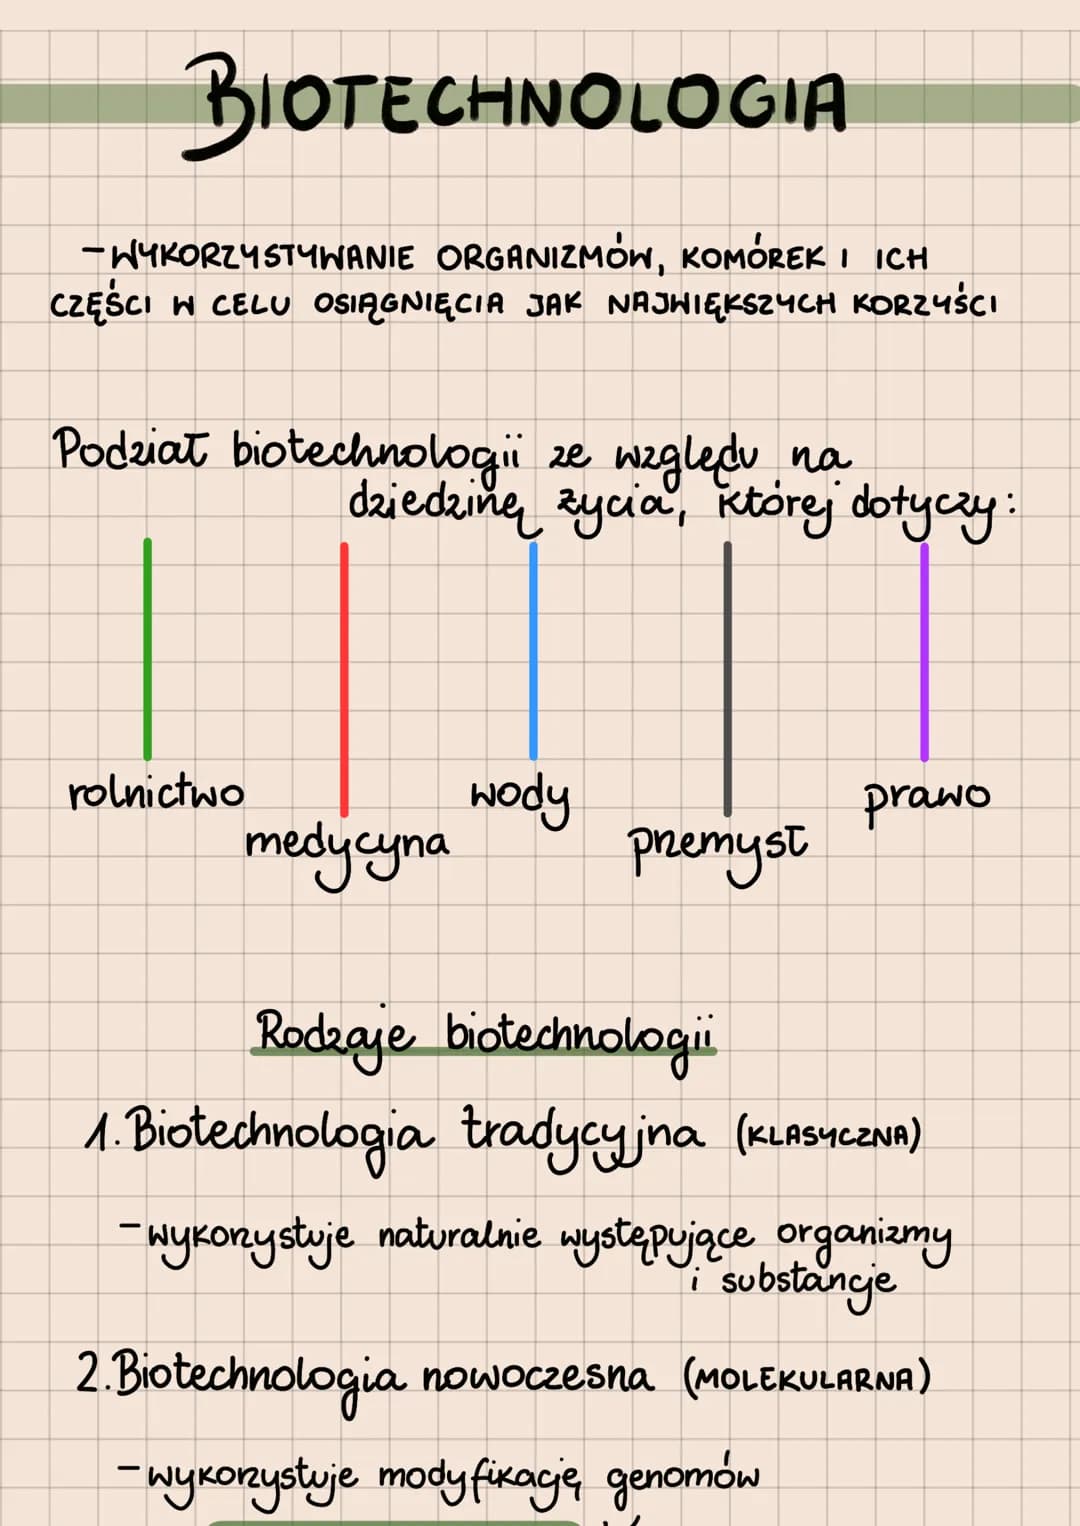 BIOTECHNOLOGIA
- WYKORZYSTYWANIE ORGANIZMÓW, KOMÓREK I ICH
CZĘŚCI W CELU OSIĄGNIĘCIA JAK NAJWIĘKSZYCH KORZYŚCI
Podział biotechnologii ze względu na
dziedzinę życia, której dotyczy:
rolnictwo
medycyna
wody
przemysł
prawo
Rodzaje biotechnologii
1. Biotechnologia tradycyjna (KLASYCZNA)
- wykorzystuje naturalnie występujące organizmy
i substancje
2. Biotechnologia nowoczesna (MOLEKULARNA)
- wykorzystuje modyfikację genomów